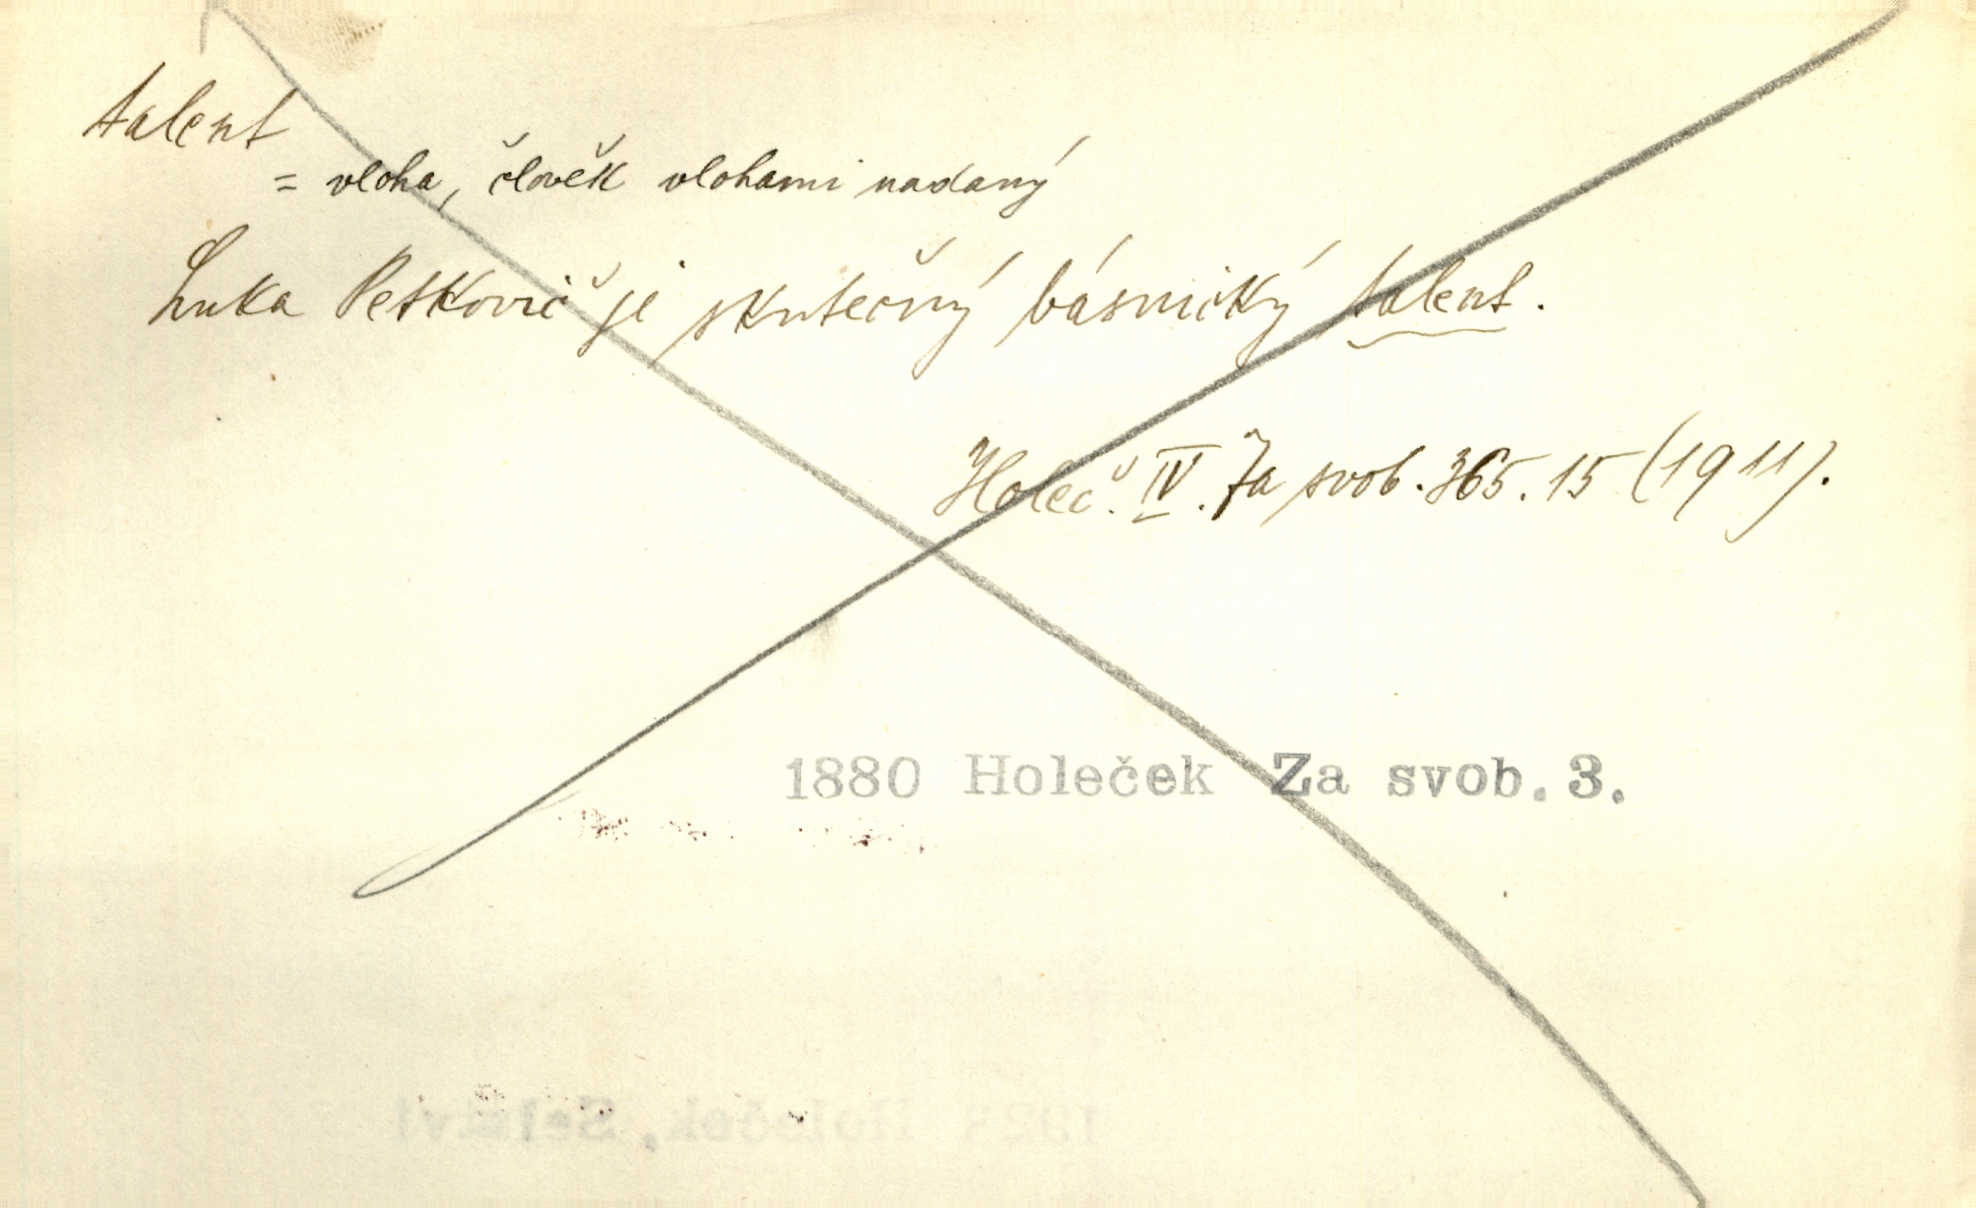 talent
= vloha, člověk vlohami nadaný
Luka Petkovič je skutečný básnický talent.
Holeč. IV. Za svob. 365. 15 (1911).
1880 Holeček Za svob. 3.